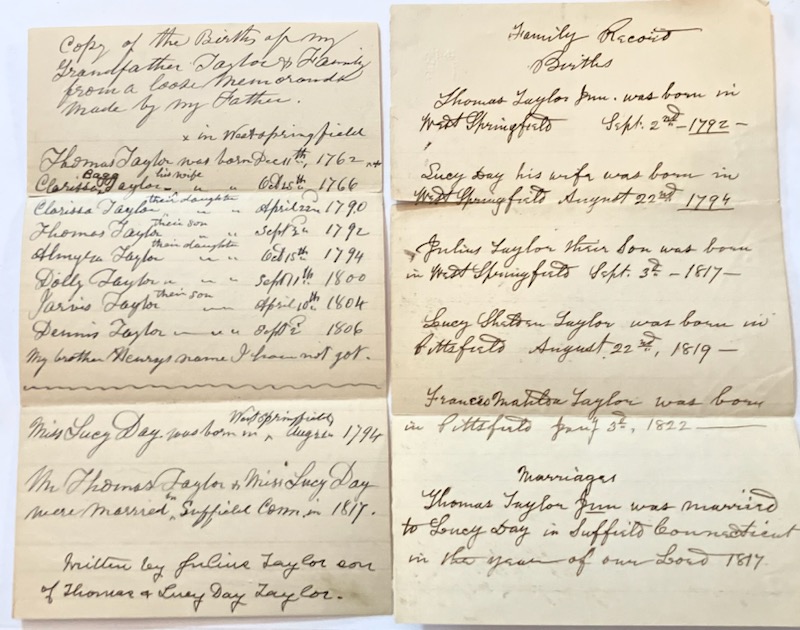 Copy of the Births of my
Grandfather Taylor & Family
from a loose Memoranda
Made by my Father.
x in West springfield
Thomas Taylor was born Dec 11th, 1762
Clarissa Bagg Taylor his wife " " Oct 25th 1766
Clarissa Taylor their daughter " " April 22n 1790
Thomas Taylor their son " " Sept 2n 1792
Almyra Taylor their daughter " " Oct 15th 1794
Dolly Taylor " " " Sept 11th 1800
Jarvis Taylor their son " " April 10th 1804
Dennis Taylor " " " Sept 2d 1806
My brother Henrys name I have not got.
Miss Lucy Day was born in West Springfield ^ Aug 22n 1794
Mr Thomas Taylor & Miss Lucy Day
were Married in ^ Suffield Conn. in 1817.
Written by Julius Taylor son
of Thomas & Lucy Day Taylor.
Family Record
Births
Thomas Taylor Jun. was born in
West Springfield Sept. 2nd – 1792 –
"
Lucy Day his wife was born in
West Springfield August 22nd 1794
Julius Taylor their Son was born
in West Springfield Sept. 3d – 1817 –
Lucy Shelden Taylor was born in
Pittsfield August 22nd, 1819 –
Frances Matilda Taylor was born
in Pittsfield Jany 3d, 1822
Marriages
Thomas Taylor Jun was married
to Lucy Day in Suffield Connecticut
in the year of our Lord 1817.